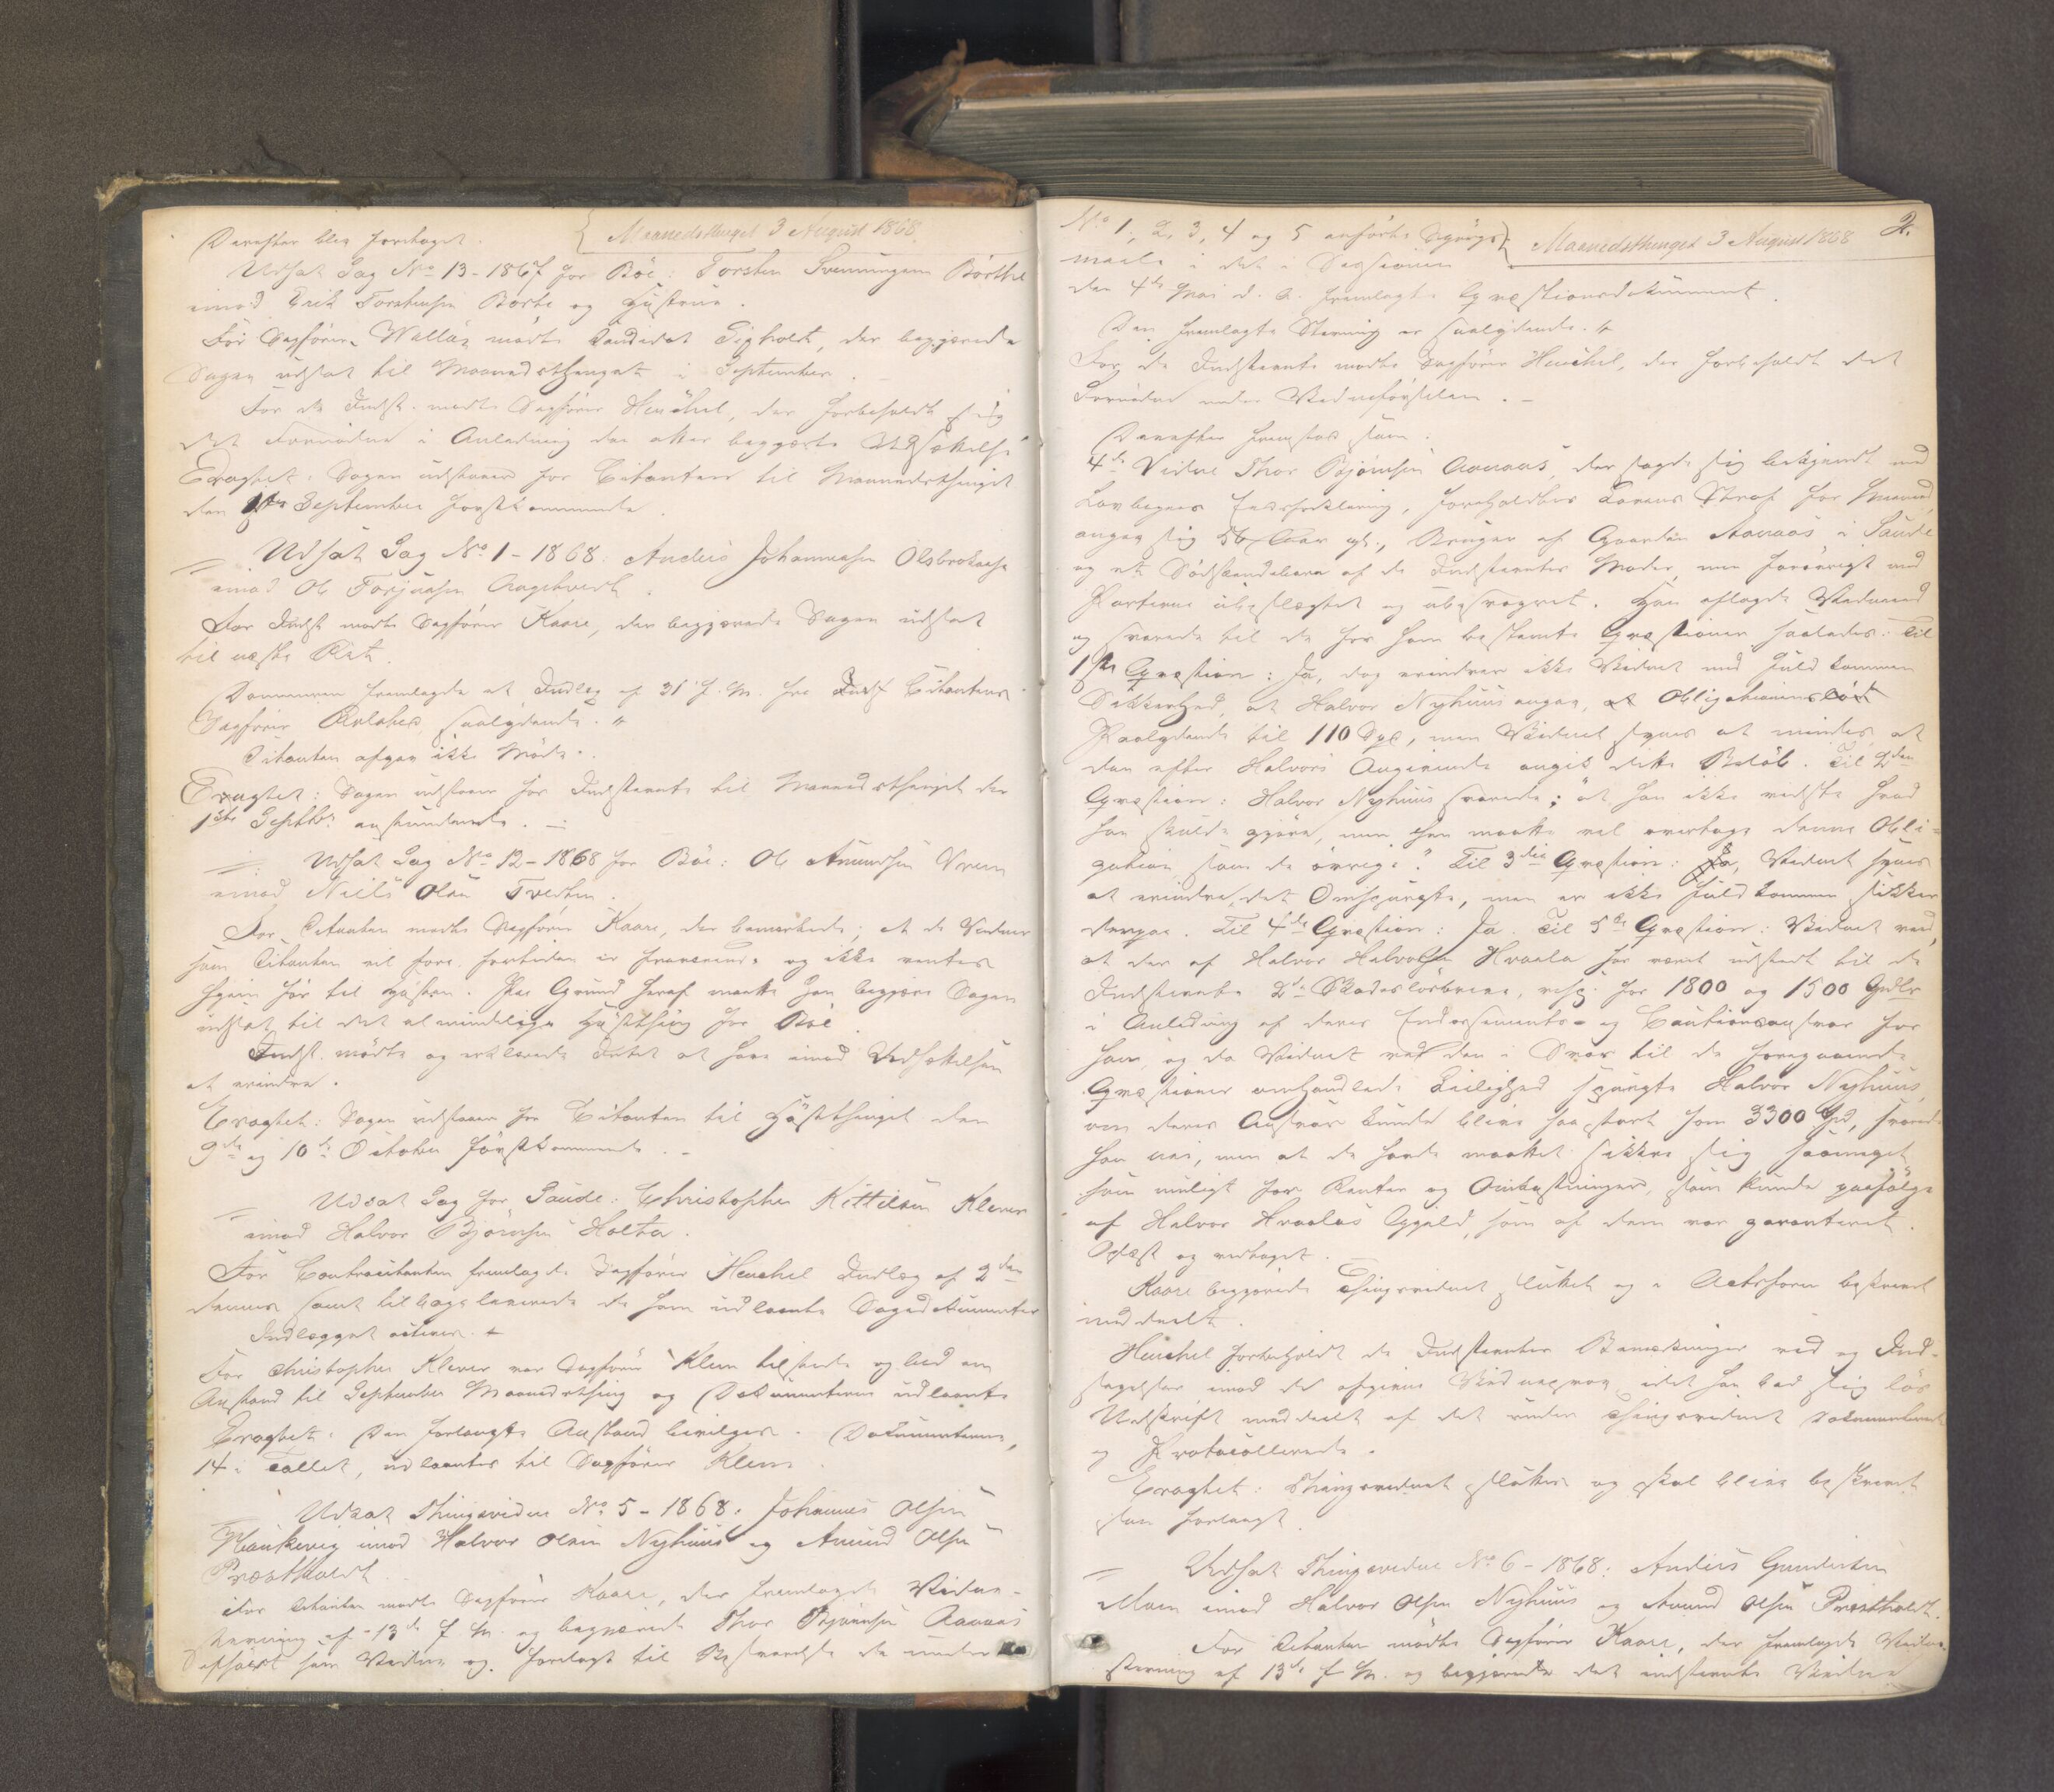 Maanedsthinget 3 August 1868.
Derefter blev foretaget.
Udsat Sag No 13-1867 for Böe: Torsten Svenningsen Börthe
imod Erik Torstensen Börte og Hustrue.
For Sagförer Wallöe mödte Candidat Gisholdt, der begjærede
Sagen udsat til Maanedsthinget i September.
For de Indst. mödte Sagförer Heuchel, der forbeholdt sig
det Fornödne i Anledning den atter begjærte Udsættelse
Eragtet: Sagen udstaaer for Citanten til Maanedsthinget
den 1ste September förstkommende.
Udsat Sag No 1-1868: Anders Johannesen Olsbrokaasa
imod Ole Torjusen
For Indst mödte Sagförer Kaare, der begjærede Sagen udsat
til næste Ret.
Dommeren fremlagde et Indlæg af 31 f. M. fra Citantens
Sagförer saalydende. #
Citanten afgav ikke Möde.
Eragtet: Sagen udstaaer for Indstevnte til Maanedsthinget den
1ste Septbr anstundende. -
Udsat Sag No 12-1868 for Böe: Ole Amundsen Vreim
imod Niels Olsen Tvedten.
For Citanten mödte Sagförer Kaare, der bemærkede, at de Vidner
som Citanten vil före fortiden er fraværende og ikke ventes
hjem för til Hösten. Paa Grund heraf maatte han begjære Sagen
udsat til det almindelige Höstthing for Böe.
Indst. mödte og erklærede Intet at have imod Udsættelsen
at erindre.
Eragtet: Sagen udstaaer for Citanten til Höstthinget den
9de og 10de October förstkommende. -
Udsat Sag for Saude: Christopher Kittilsen Klever
imod Halvor Björnsen Holta.
For Contracitanten fremlagde Sagförer Heuchel Indlæg af 2den
dennes samt tilbageleverede de ham udlaante Sagsdokumenter
Indlægget acteres. #
For Christopher Klever var Sagförer Klem tilstede og bad om
Anstand til September Maanedsthing og Dokumenterne udlaante
Eragtet: Den forlangte Anstand bevilges. Dokumenterne,
14 i Tallet, udlaantes til Sagförer Klem.
Udsat Thingsvidne No 5-1868: Johannes Olsen
Haukevig imod Halvor Olsen Nyhuus og Amund Olsen
Præstholdt.
For Citanten mödte Sagförer Kaare, der fremlagde Vidne-
stevning af 13de f. M. og begjærede Thor Björnsen Aavaas
som Vidne og forelagt til Besvarelse de under
2.
Maanedsthinget 3 August 1868
No 1, 2, 3, 4 og 5 anförte Spörgs-
maale i det i Sessionen
den 4de Mai d. A. fremlagte Qvæstionsdokument.
Den fremlagte Stevning er saalydende. #
For de Indstevnte mödte Sagförer Heuchel, der forbeholdt det
Fornödne under Vidneförselen. -
Derefter fremstod som
4de Vidne Thor Björnsen Aavaas, der sagde sig bekjendt med
Lovbogens Eedsforklaring, foreholdtes Lovens Straf for Meened,
angav sig 56 Aar gl., Bruger af Gaarden Aavaas i Saude
og et Södskendebarn af de Indstevntes Moder, men forövrigt med
Parterne ubeslægtet og ubesvogret. Han aflagde Vidneeed
og svarede til de for ham bestemte Qvæstioner saaledes: Til
1ste Qvæstion: Ja, dog erindrer ikke Vidnet med fuldkommen
Sikkerhed, at Halvor Nyhuus angav, at Obligationens
Paalydende til 110 Spd, men Vidnet synes at mindes at
den efter Halvors Angivende angik dette Belöb. Til 2den
Qvæstion: Halvor Nyhuus svarede: "at han ikke vidste hvad
han skulde gjöre, men han maatte vel overtage denne Obli-
gation som de övrige." Til 3die Qvæstion: Vidnet synes
at erindre det Omspurgte, men er ikke fuldkommen sikker
derpaa. Til 4de Qvæstion: Ja. Til 5te Qvæstion: Vidnet ved,
at der af Halvor Halvorsen Hvaala har været udstedt til de
Indstevnte 2de Skadeslösbreve, resp. for 1800 og 1500 Spdlr
i Anledning af deres Endossements- og Cautionsansvar for
ham, og da Vidnet ved den i Svar til de foregaaende
Qvæstioner omhandlede Leilighed spurgte Halvor Nyhuus,
om deres Ansvar kunde blive saa stort som 3300 Spd, svarede
han nei, men at de havde maattet sikkre sig saameget
som muligt for Renter og Omkostninger, som kunde paafölge
af Halvor Hvaalas Gjæld, som af dem var garanteret.
Oplæst og vedtaget. -
Kaare begjærede Thingsvidnet sluttet og i Actsform beskrevet
meddeelt.
Heuchel forbeholdt de Indstevnte Bemærkninger ved og Ind-
sigelser imod det afgivne Vidneprov, idet han bad sig lös
Udskrift meddeelt af det under Thingsvidnet Dokumenterede
og Protocollerede.
Eragtet: Thingsvidnet sluttes og skal blive beskrevet
som forlangt.
Udsat Thingsvidne No 6-1868: Anders Gundersen
Moen imod Halvor Olsen Nyhuus og Amund Olsen Præstholdt.
For Citanten mödte Sagförer Kaare, der fremlagde Vidne-
stevning af 13de f. M. og begjærede det indstevnte Vidne